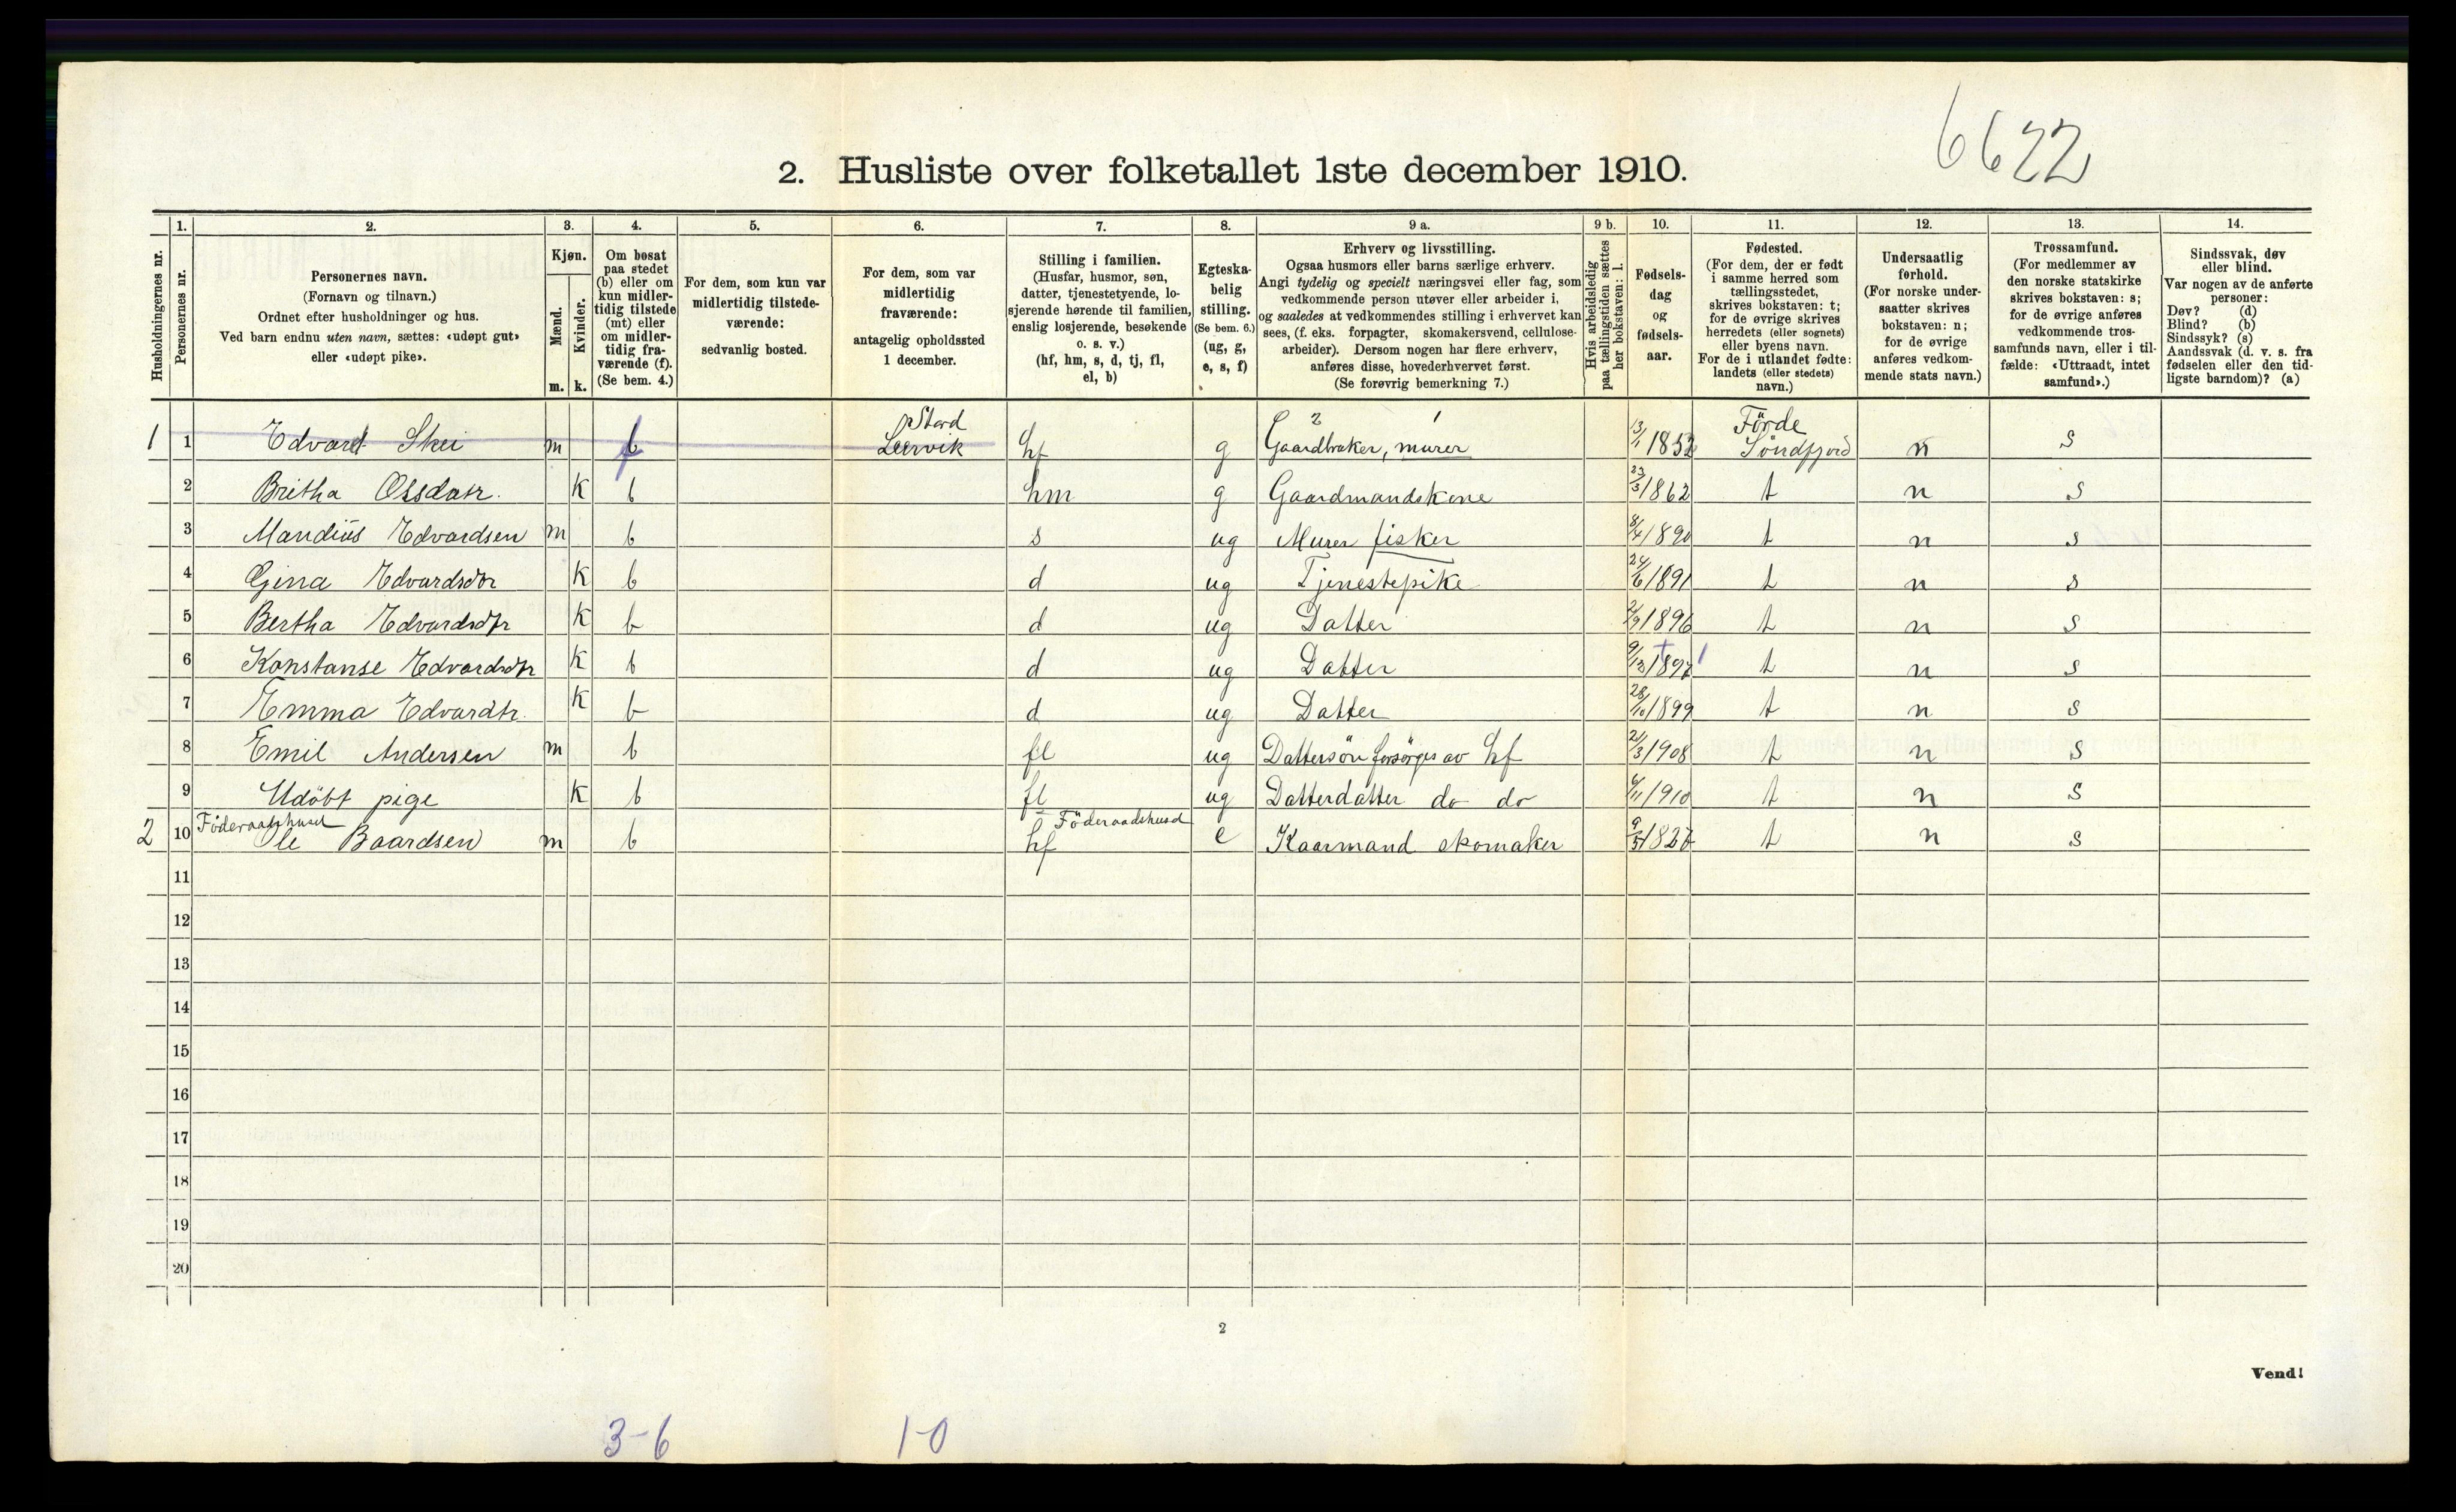 6622
2. Husliste over folketallet 1ste december 1910.
Husholdningernes nr.
1. Personernes nr.
2. Personernes navn.
(Fornavn og tilnavn.)
Ordnet efter husholdninger og hus.
Ved barn endnu uten navn, sættes: «udøpt gut»
eller «udøpt pike».
3. Kjøn.
Mænd. m.
Kvinder. k.
4. Om bosat
paa stedet
(b) eller om
kun midler-
tidig tilstede
(mt) eller
om midler-
tidig fra-
værende (f).
(Se bem. 4.)
5. For dem, som kun var
midlertidig tilstede-
værende:
sedvanlig bosted.
6. For dem, som var
midlertidig
fraværende:
antagelig opholdssted
1 december.
7. Stilling i familien.
(Husfar, husmor, søn,
datter, tjenestetyende, lo-
sjerende hørende til familien,
enslig losjerende, besøkende
o. s. v.)
(hf, hm, s, d, tj, fl,
el, b)
8. Egteska-
belig
stilling.
(Se bem. 6.)
(ug, g,
e, s, f)
9 a. Erhverv og livsstilling.
Ogsaa husmors eller barns særlige erhverv.
Angi tydelig og specielt næringsvei eller fag, som
vedkommende person utøver eller arbeider i,
og saaledes at vedkommendes stilling i erhvervet kan
sees, (f. eks. forpagter, skomakersvend, cellulose-
arbeider). Dersom nogen har flere erhverv,
anføres disse, hovederhvervet først.
(Se forøvrig bemerkning 7.)
9 b. Hvis arbeidsledig
paa tællingstiden sættes
her bokstaven: l.
10. Fødsels-
dag
og
fødsels-
aar.
11. Fødested.
(For dem, der er født
i samme herred som
tællingsstedet,
skrives bokstaven: t;
for de øvrige skrives
herredets (eller sognets)
eller byens navn.
For de i utlandet fødte:
landets (eller stedets)
navn.)
12. Undersaatlig
forhold.
(For norske under-
saatter skrives
bokstaven: n;
for de øvrige
anføres vedkom-
mende stats navn.)
13. Trossamfund.
(For medlemmer av
den norske statskirke
skrives bokstaven: s;
for de øvrige anføres
vedkommende tros-
samfunds navn, eller i til-
fælde: «Uttraadt, intet
samfund».)
14. Sindssvak, døv
eller blind.
Var nogen av de anførte
personer:
Døv? (d)
Blind? (b)
Sindssyk? (s)
Aandssvak (d. v. s. fra
fødselen eller den tid-
ligste barndom)? (a)
Stord 2 1 Förde
1 1 Edvard Skei m f Leervik hf g Gaardbruker, murer 13/1 1852 Söndfjord n s
2 Britha Olsdatr. k b hm g Gaardmandskone 23/3 1862 t n s
3 Mandius Edvardsen m b s ug Murer fisker 8/4 1890 t n s
4 Gina Edvardsdtr k b d ug Tjenestepike 24/6 1891 t n s
5 Bertha Edvardsdtr k b d ug Datter 2/9 1896 t n s
6 Konstanse Edvardsdtr k b d ug Datter 9/12 1897 t n s
7 Emma Edvardtr. k b d ug Datter 28/10 1899 t n s
8 Emil Andersen m b fl ug Dattersön forsörges av hf 21/3 1908 t n s
9 Udöbt pige k b fl ug Datterdatter do do 6/11 1910 t n s
Föderaadshuset Föderaadshusd
2 10 Ole Baardsen m b hf e Kaarmand skomaker 9/5 1827 t n s
11
12
13
14
15
16
17
18
19
20
2
Vend!
3-6 1-0